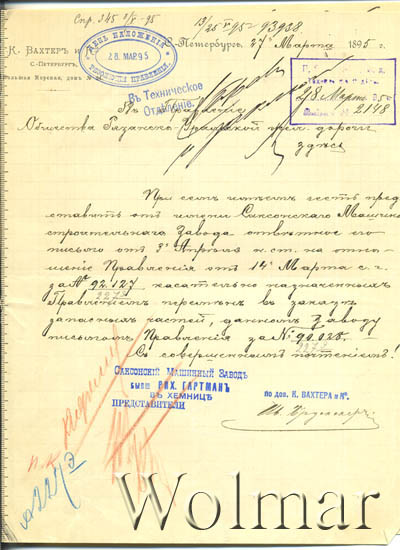 Спр. 345 2/V-95
13/25 V 95 93938.
К. ВАХТЕР и
С.-ПЕТЕРБУРГ,
Морская, домъ №
С-Петербургъ, 27 Марта 1895 г.
28 МАР. 95
ПРАВЛЕНІЯ
28 Марта 95
№ 2148
Въ Техническое
Отдѣленіе.
Въ Правленіе
Общества Рязанско-Уральской жел. дороги
здѣсь
При семъ имѣемъ честь пред
ставить отъ имени Саксонскаго Машино
строительнаго Завода отвѣтное его
письмо отъ 3го Апрѣля н. ст. на отно
шеніе Правленія отъ 14го Марта с. г.
за № 92.127 касательно назначенныхъ
Правленіемъ перемѣнъ въ заказѣ
запасныхъ частей, данномъ Заводу
письмомъ Правленія за № 90.028.
Съ совершеннымъ почтеніемъ!
САКСОНСКІЙ МАШИННЫЙ ЗАВОДЪ
БЫВШ. РИХ. ГАРТМАНЪ
ВЪ ХЕМНИЦѢ
ПРЕДСТАВИТЕЛИ
по дов. К. ВАХТЕРА и К°.
Wolmar